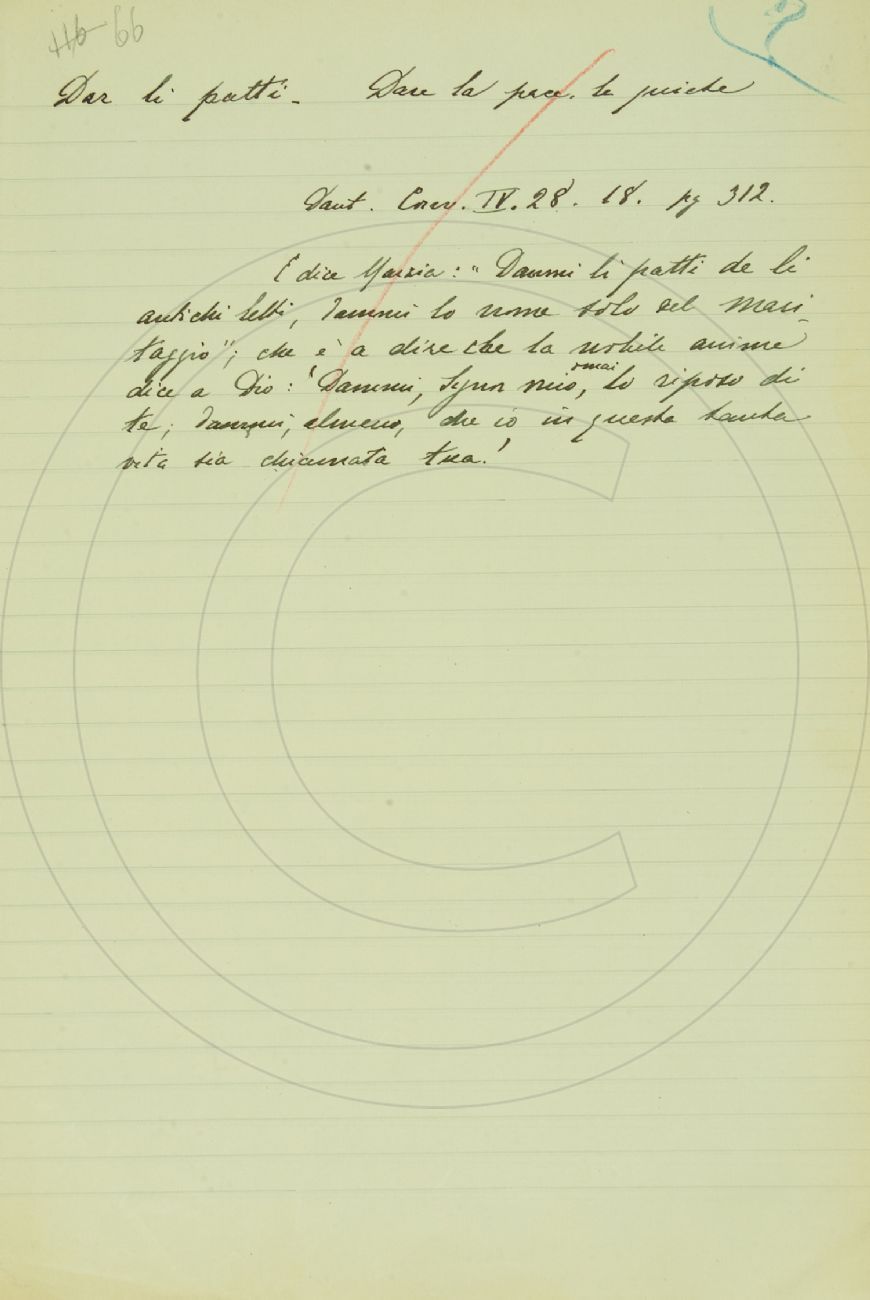 66
Dar li patti - Dare la pace. la quiete
Dant. Conv. IV. 28. 18. pg 312.
E dice Marzia: "Dammi li patti de li
antichi letti, dammi lo nome solo del mari-
taggio"; che è a dire che la nobile anima
dice a Dio: 'Dammi, Segnor mio, omai, lo riposo di
te; dammi, almeno, che io in questa tanta
vita sia chiamata tua.'